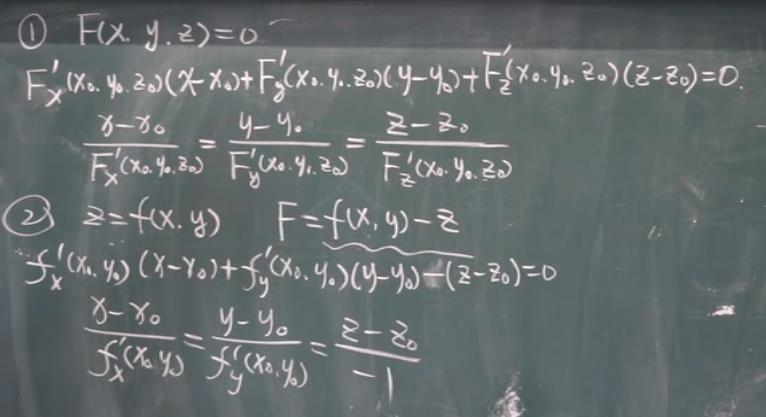 ① F(x. y. z)=0
F'x(x₀. y₀. z₀)(x-x₀)+F'y(x₀. y₀. z₀)(y-y₀)+F'z(x₀. y₀. z₀)(z-z₀)=0.
(x-x₀)/(F'x(x₀. y₀. z₀)) = (y-y₀)/(F'y(x₀. y₀. z₀)) = (z-z₀)/(F'z(x₀. y₀. z₀))
② z=f(x. y) F=f(x, y)-z
f'x(x₀. y₀)(x-x₀)+f'y(x₀. y₀)(y-y₀)-(z-z₀)=0
(x-x₀)/(f'x(x₀. y₀)) = (y-y₀)/(f'y(x₀. y₀)) = (z-z₀)/(-1)